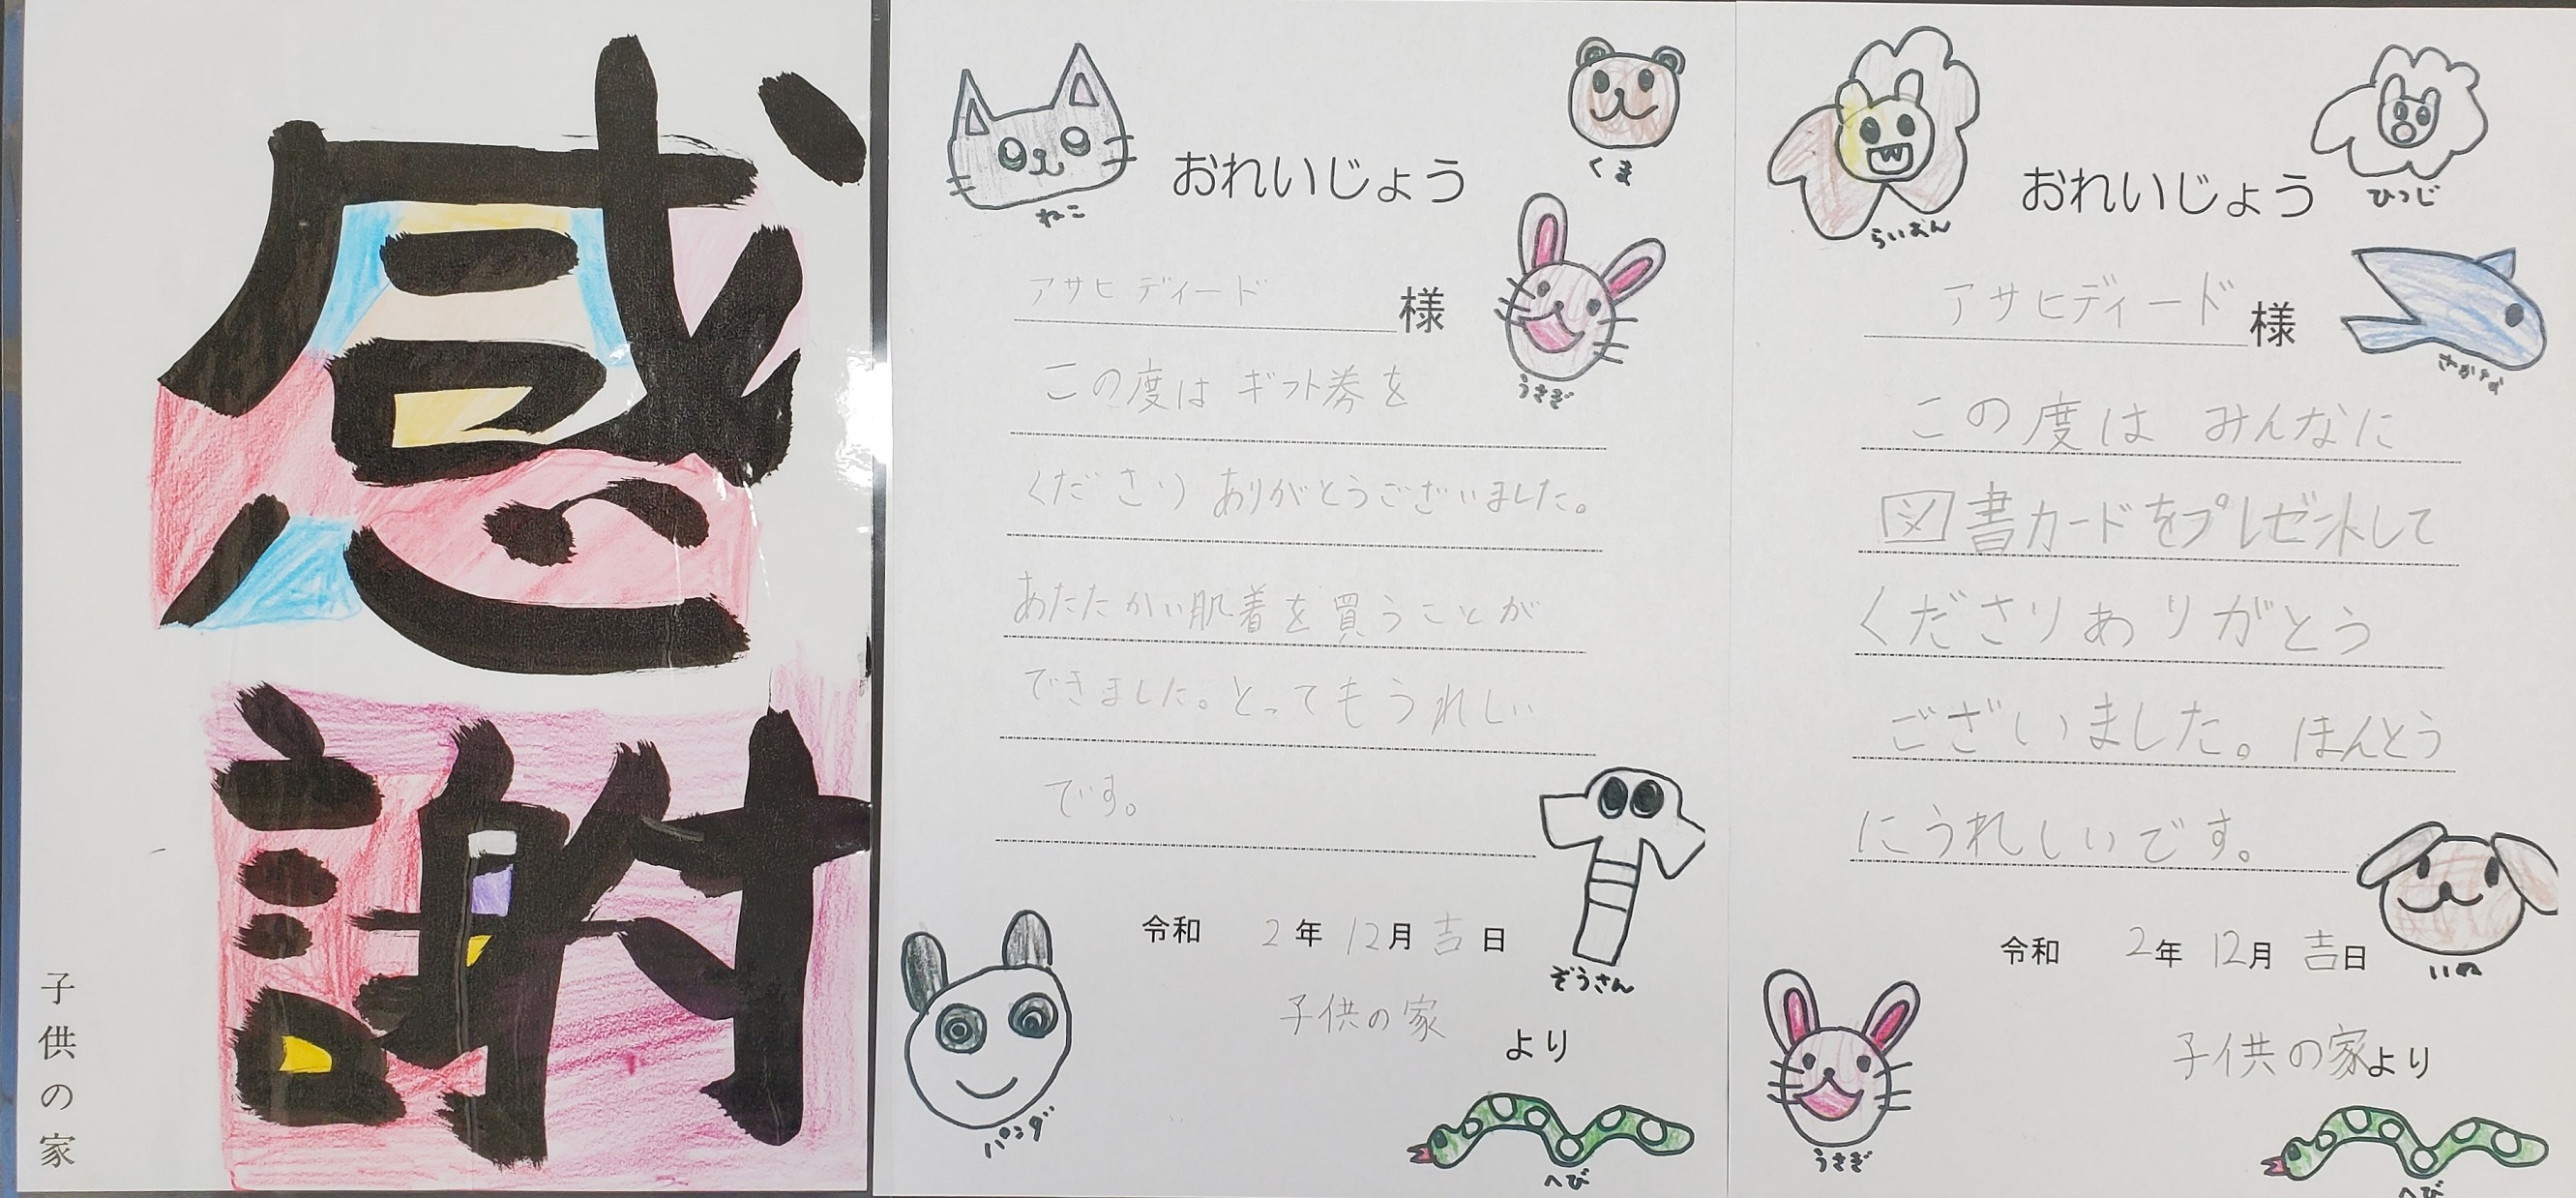 感謝
子供の家
ねこ
くま
おれいじょう
アサヒディード様
うさぎ
この度はギフト券を
くださり ありがとうございました。
あたたかい肌着を買うことが
できました。とってもうれしい
です。
ぞうさん
令和 2年 12月 吉日
子供の家 より
パンダ
へび
らいおん
ひつじ
おれいじょう
アサヒディード様
さかな
この度は みんなに
図書カードをプレゼントして
くださりありがとう
ございました。ほんとう
にうれしいです。
いぬ
令和 2年 12月 吉日
子供の家より
うさぎ
へび